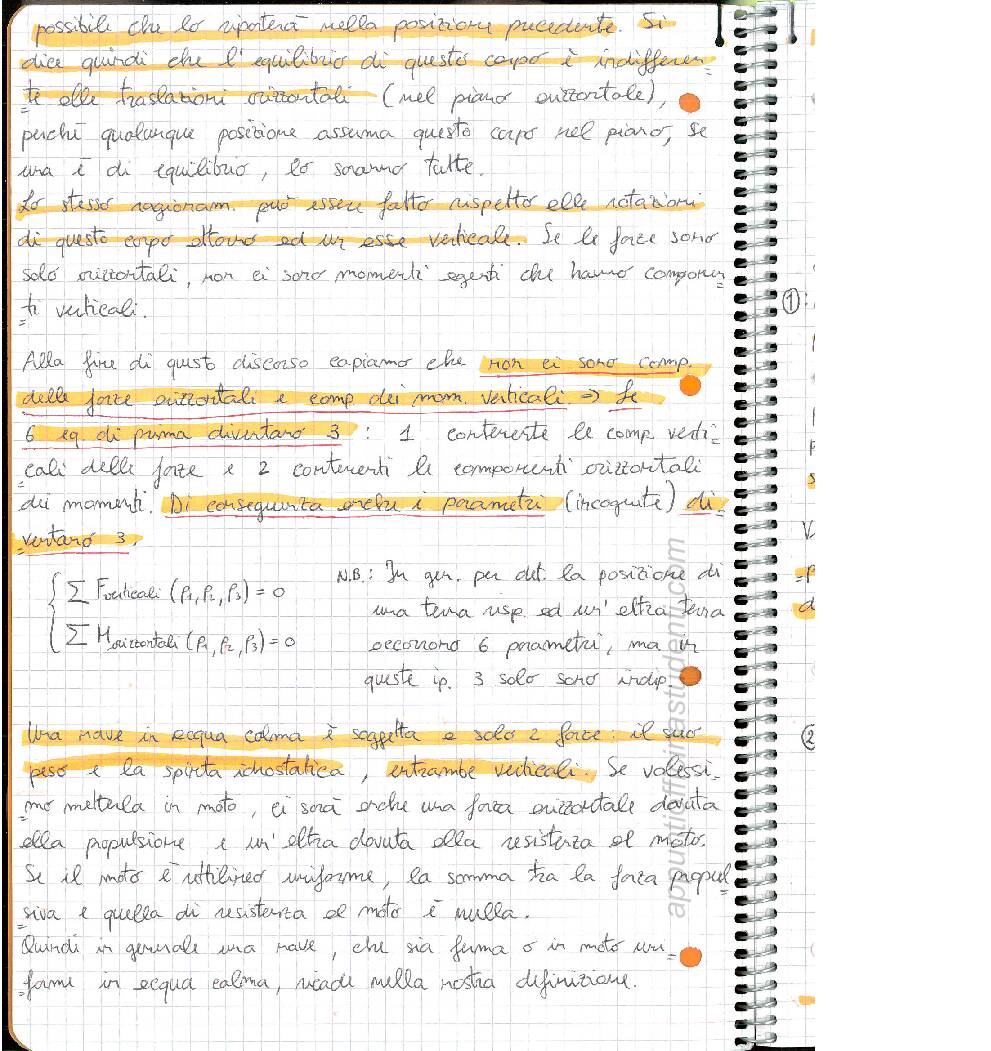 possibili che lo riporterà nella posizione precedente. Si
dice quindi che l'equilibrio di questo corpo è indifferen-
te alle traslazioni orizzontali (nel piano orizzontale),
perché qualunque posizione assuma questo corpo nel piano, se
una è di equilibrio, lo saranno tutte.
Lo stesso ragionam. può essere fatto rispetto alle rotazioni
di questo corpo attorno ad un asse verticale. Se le forze sono
solo orizzontali, non ci sono momenti agenti che hanno componen
ti verticali.
Alla fine di questo discorso capiamo che non ci sono comp.
delle forze orizzontali e comp dei mom. verticali => Le
6 eq. di prima diventano 3 : 1 contenente le comp. verti-
cali delle forze e 2 contenenti le componenti orizzontali
dei momenti. Di conseguenza anche i parametri (incognite) di-
ventano 3.
∑ Fverticali (ρ1, ρ2, ρ3) = 0
∑ Morizzontali (ρ1, ρ2, ρ3) = 0
N.B.: In gen. per det. la posizione di
una terna risp. ad un'altra terna
occorrono 6 parametri, ma in
queste ip. 3 solo sono indip.
Una nave in acqua calma è soggetta a solo 2 forze: il suo
peso e la spinta idrostatica, entrambe verticali. Se volessi-
mo metterla in moto, ci sarà anche una forza orizzontale dovuta
alla propulsione e un'altra dovuta alla resistenza al moto.
Se il moto è rettilineo uniforme, la somma tra la forza propul
siva e quella di resistenza al moto è nulla.
Quindi in generale una nave, che sia ferma o in moto uni-
forme in acqua calma, ricade nella nostra definizione.
1:
2
appuntiuffisinastudenti.com